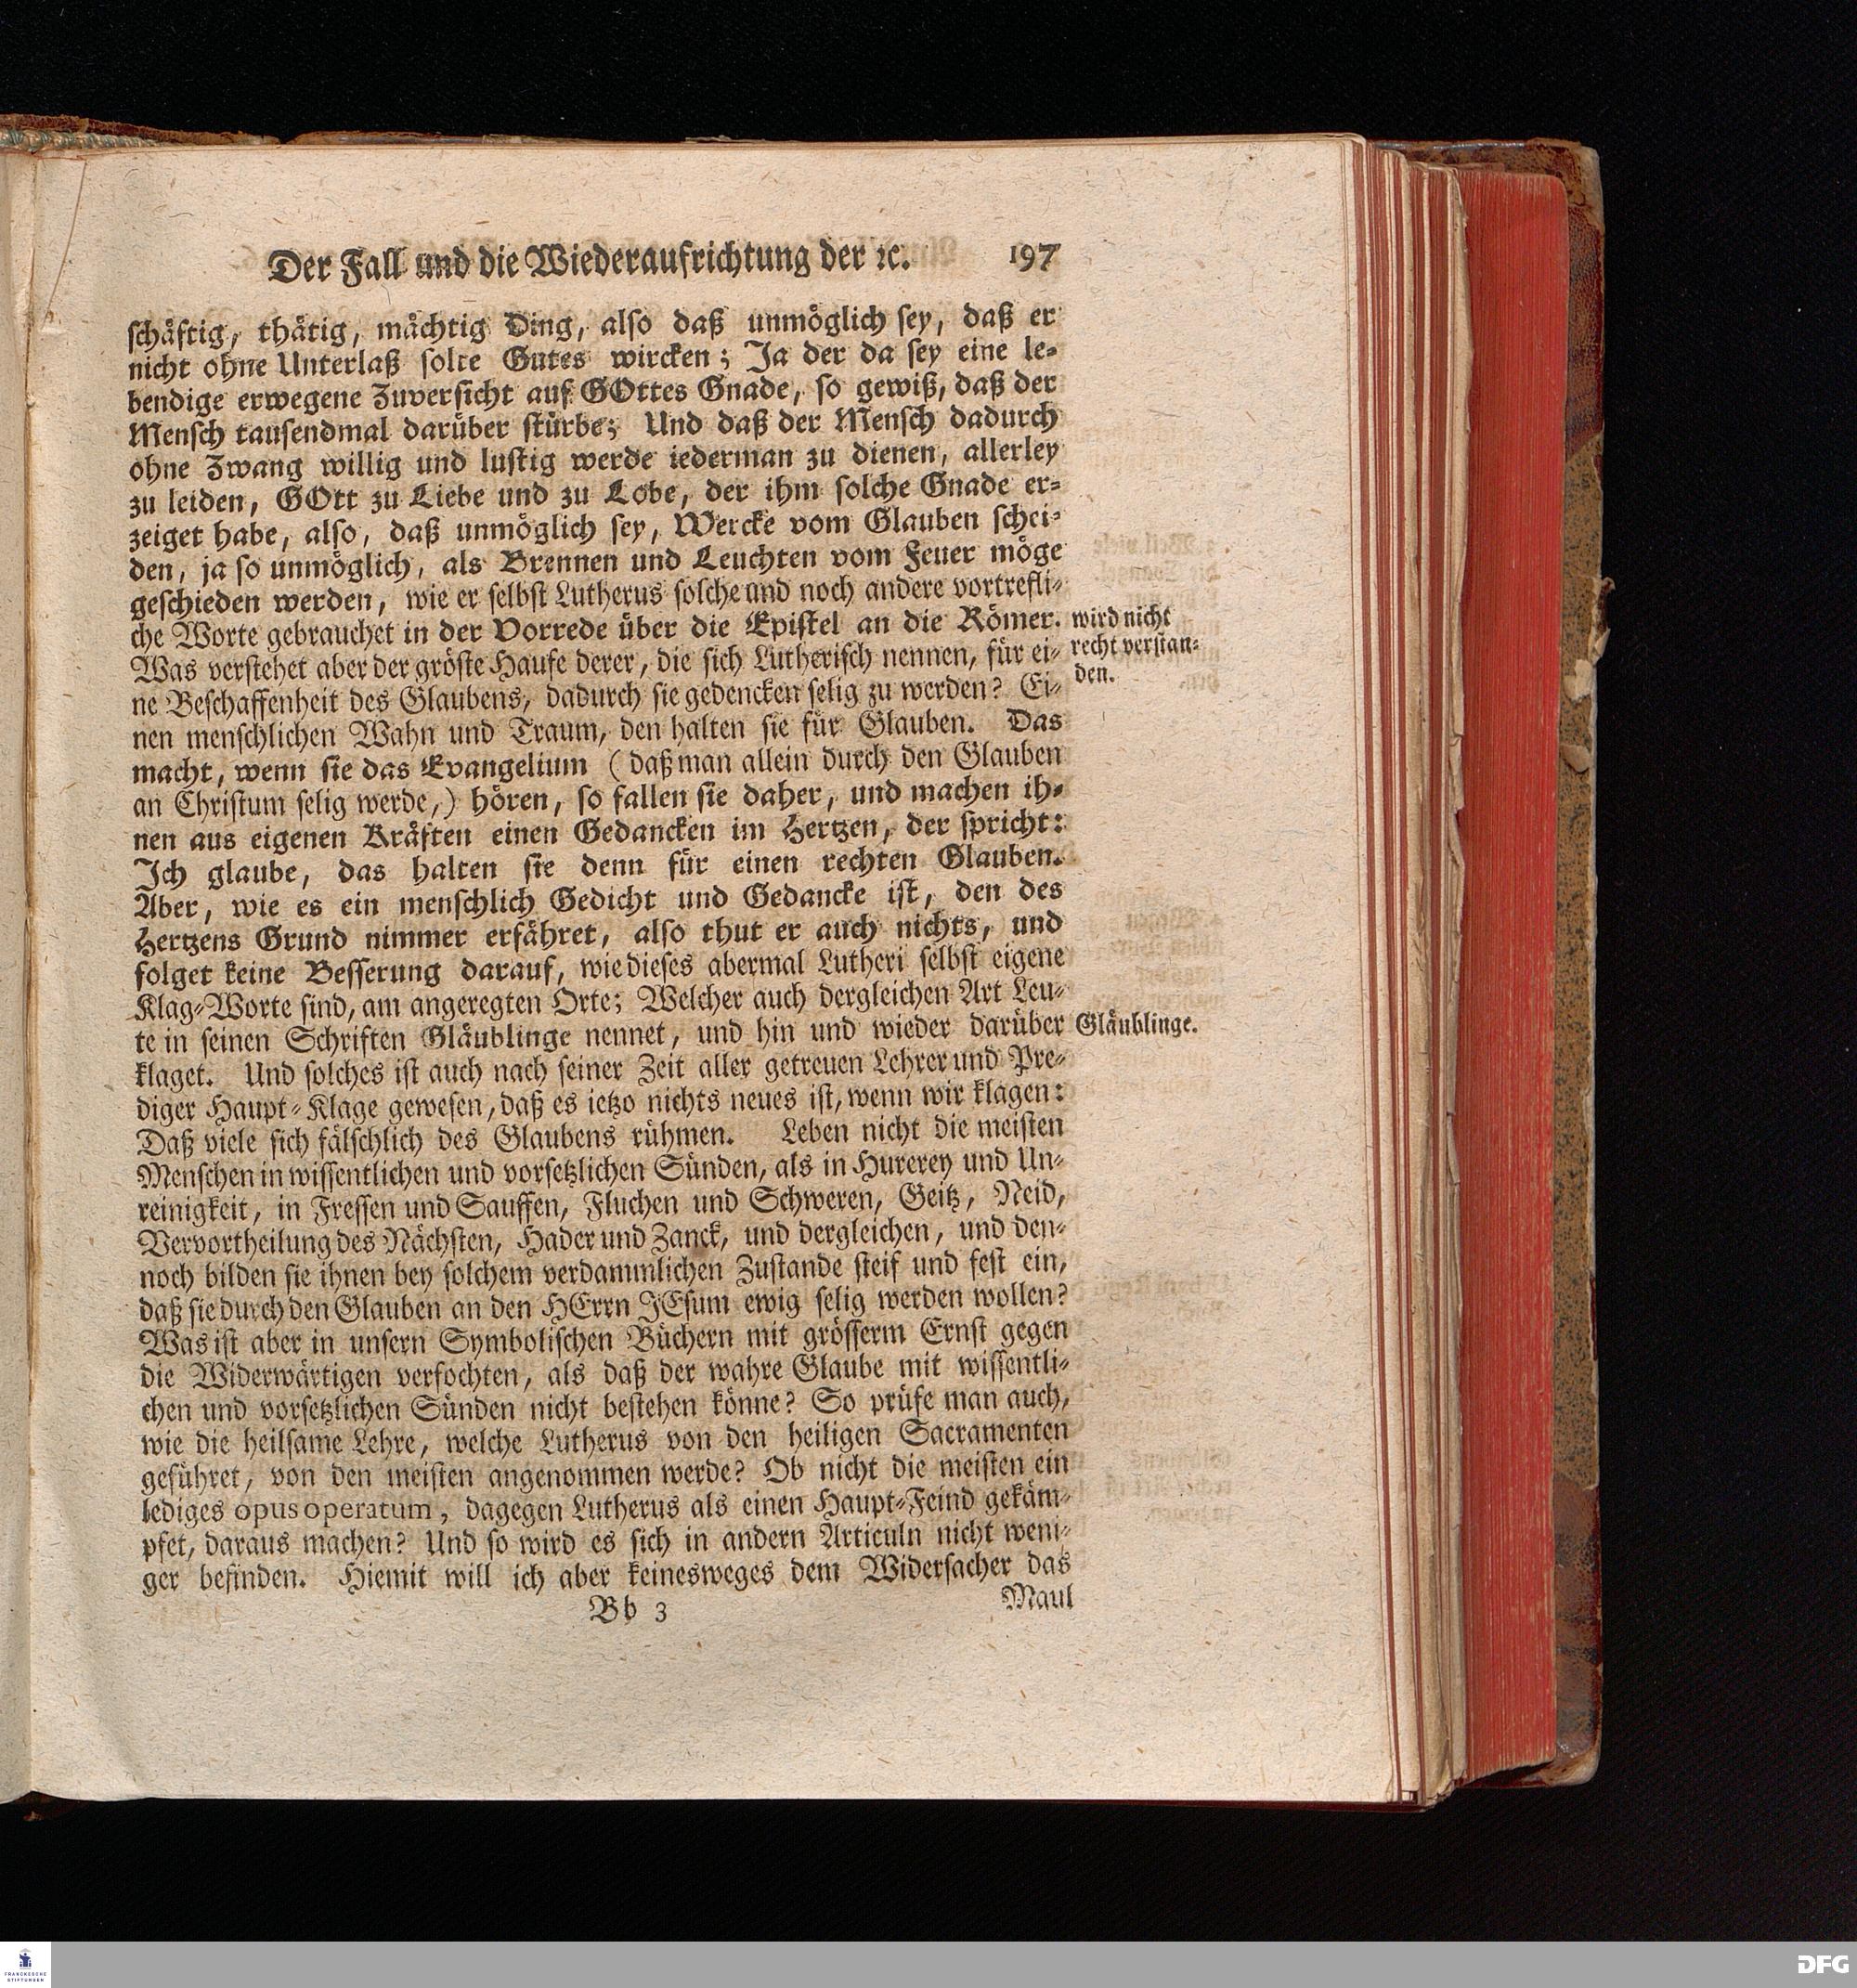 Der Fall und die Wiederaufrichtung der ꝛc. 197
schäftig, thätig, mächtig Ding, also daß unmöglich sey, daß er
nicht ohne Unterlaß solte Gutes wircken; Ja der da sey eine le-
bendige erwegene Zuversicht auf GOttes Gnade, so gewiß, daß der
Mensch tausendmal darüber stürbe; Und daß der Mensch dadurch
ohne Zwang willig und lustig werde iederman zu dienen, allerley
zu leiden, GOtt zu Liebe und zu Lobe, der ihm solche Gnade er-
zeiget habe, also, daß unmöglich sey, Wercke vom Glauben schei-
den, ja so unmöglich, als Brennen und Leuchten vom Feuer möge
geschieden werden, wie er selbst Lutherus solche und noch andere vortrefli-
che Worte gebrauchet in der Vorrede über die Epistel an die Römer.
Was verstehet aber der gröste Haufe derer, die sich Lutherisch nennen, für ei-
ne Beschaffenheit des Glaubens, dadurch sie gedencken selig zu werden? Ei-
nen menschlichen Wahn und Traum, den halten sie für Glauben. Das
macht, wenn sie das Evangelium (daß man allein durch den Glauben
an Christum selig werde,) hören, so fallen sie daher, und machen ih-
nen aus eigenen Kräften einen Gedancken im Hertzen, der spricht:
Ich glaube, das halten sie denn für einen rechten Glauben.
Aber, wie es ein menschlich Gedicht und Gedancke ist, den des
Hertzens Grund nimmer erfähret, also thut er auch nichts, und
folget keine Besserung darauf, wie dieses abermal Lutheri selbst eigene
Klag-Worte sind, am angeregten Orte; Welcher auch dergleichen Art Leu-
te in seinen Schriften Gläublinge nennet, und hin und wieder darüber
klaget. Und solches ist auch nach seiner Zeit aller getreuen Lehrer und Pre-
diger Haupt-Klage gewesen, daß es ietzo nichts neues ist, wenn wir klagen:
Daß viele sich fälschlich des Glaubens rühmen. Leben nicht die meisten
Menschen in wissentlichen und vorsetzlichen Sünden, als in Hurerey und Un-
reinigkeit, in Fressen und Sauffen, Fluchen und Schweren, Geitz, Neid,
Vervortheilung des Nächsten, Hader und Zanck, und dergleichen, und den-
noch bilden sie ihnen bey solchem verdammlichen Zustande steif und fest ein,
daß sie durch den Glauben an den HErrn JEsum ewig selig werden wollen?
Was ist aber in unsern Symbolischen Büchern mit grösserm Ernst gegen
die Widerwärtigen verfochten, als daß der wahre Glaube mit wissentli-
chen und vorsetzlichen Sünden nicht bestehen könne? So prüfe man auch,
wie die heilsame Lehre, welche Lutherus von den heiligen Sacramenten
geführet, von den meisten angenommen werde? Ob nicht die meisten ein
lediges opus operatum, dagegen Lutherus als einen Haupt-Feind gekäm-
pfet, daraus machen? Und so wird es sich in andern Articuln nicht weni-
ger befinden. Hiemit will ich aber keinesweges dem Widersacher das
Bb 3 Maul
wird nicht
recht verstan-
den.
Gläublinge.
FRANCKESCHE
STIFTUNGEN
DFG